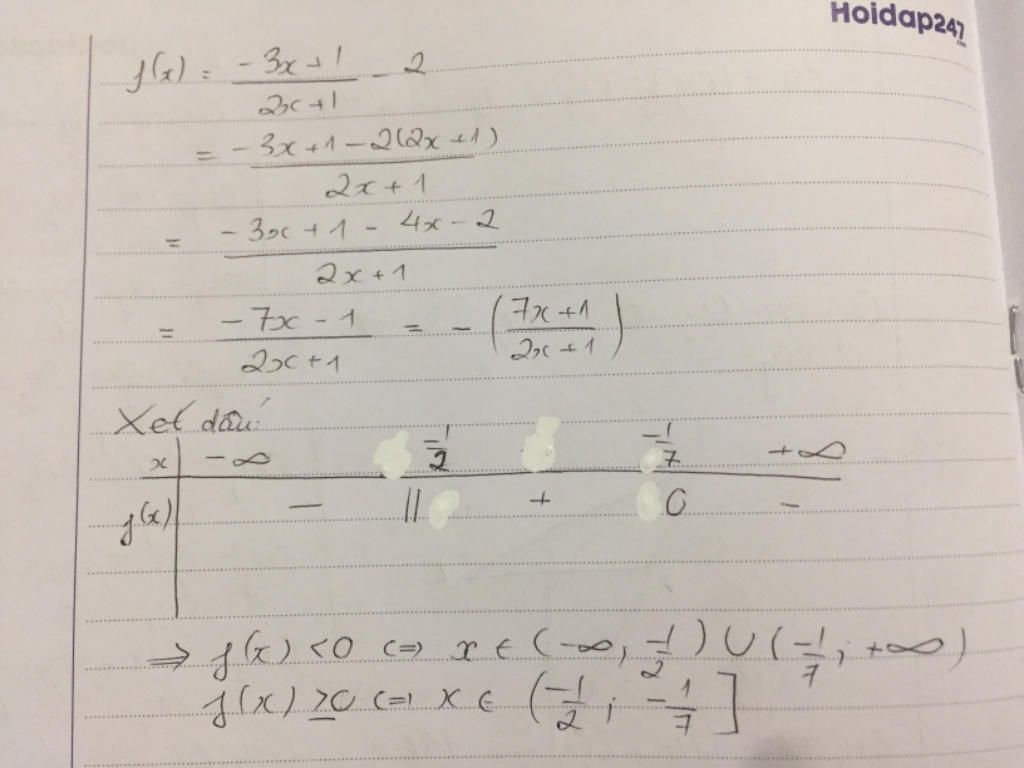 Hoidap247.com
f(x) = (-3x+1)/(2x+1) - 2
= (-3x+1-2(2x+1))/(2x+1)
= (-3x+1-4x-2)/(2x+1)
= (-7x-1)/(2x+1) = -((7x+1)/(2x+1))
Xét dấu:
x | -∞ -1/2 -1/7 +∞
f(x) | - || + 0 -
⇒ f(x) <0 <=> x ∈ (-∞, -1/2) ∪ (-1/7; +∞)
f(x) ≥0 <=> x ∈ (-1/2; -1/7]